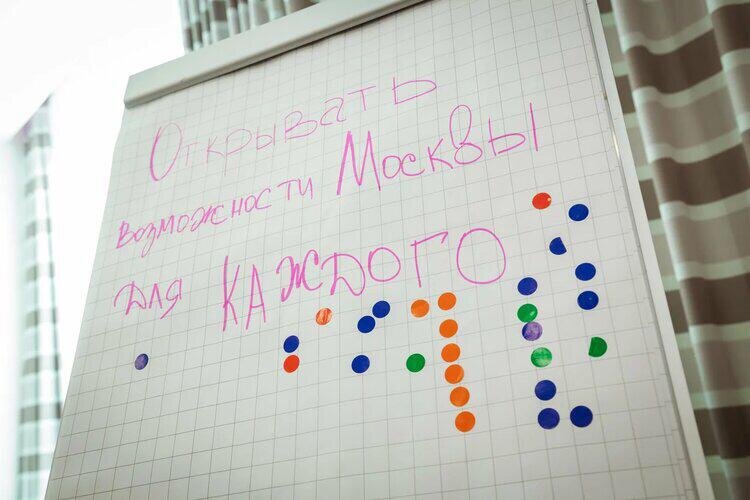 Открывать
возможности Москвы
для КАЖДОГО